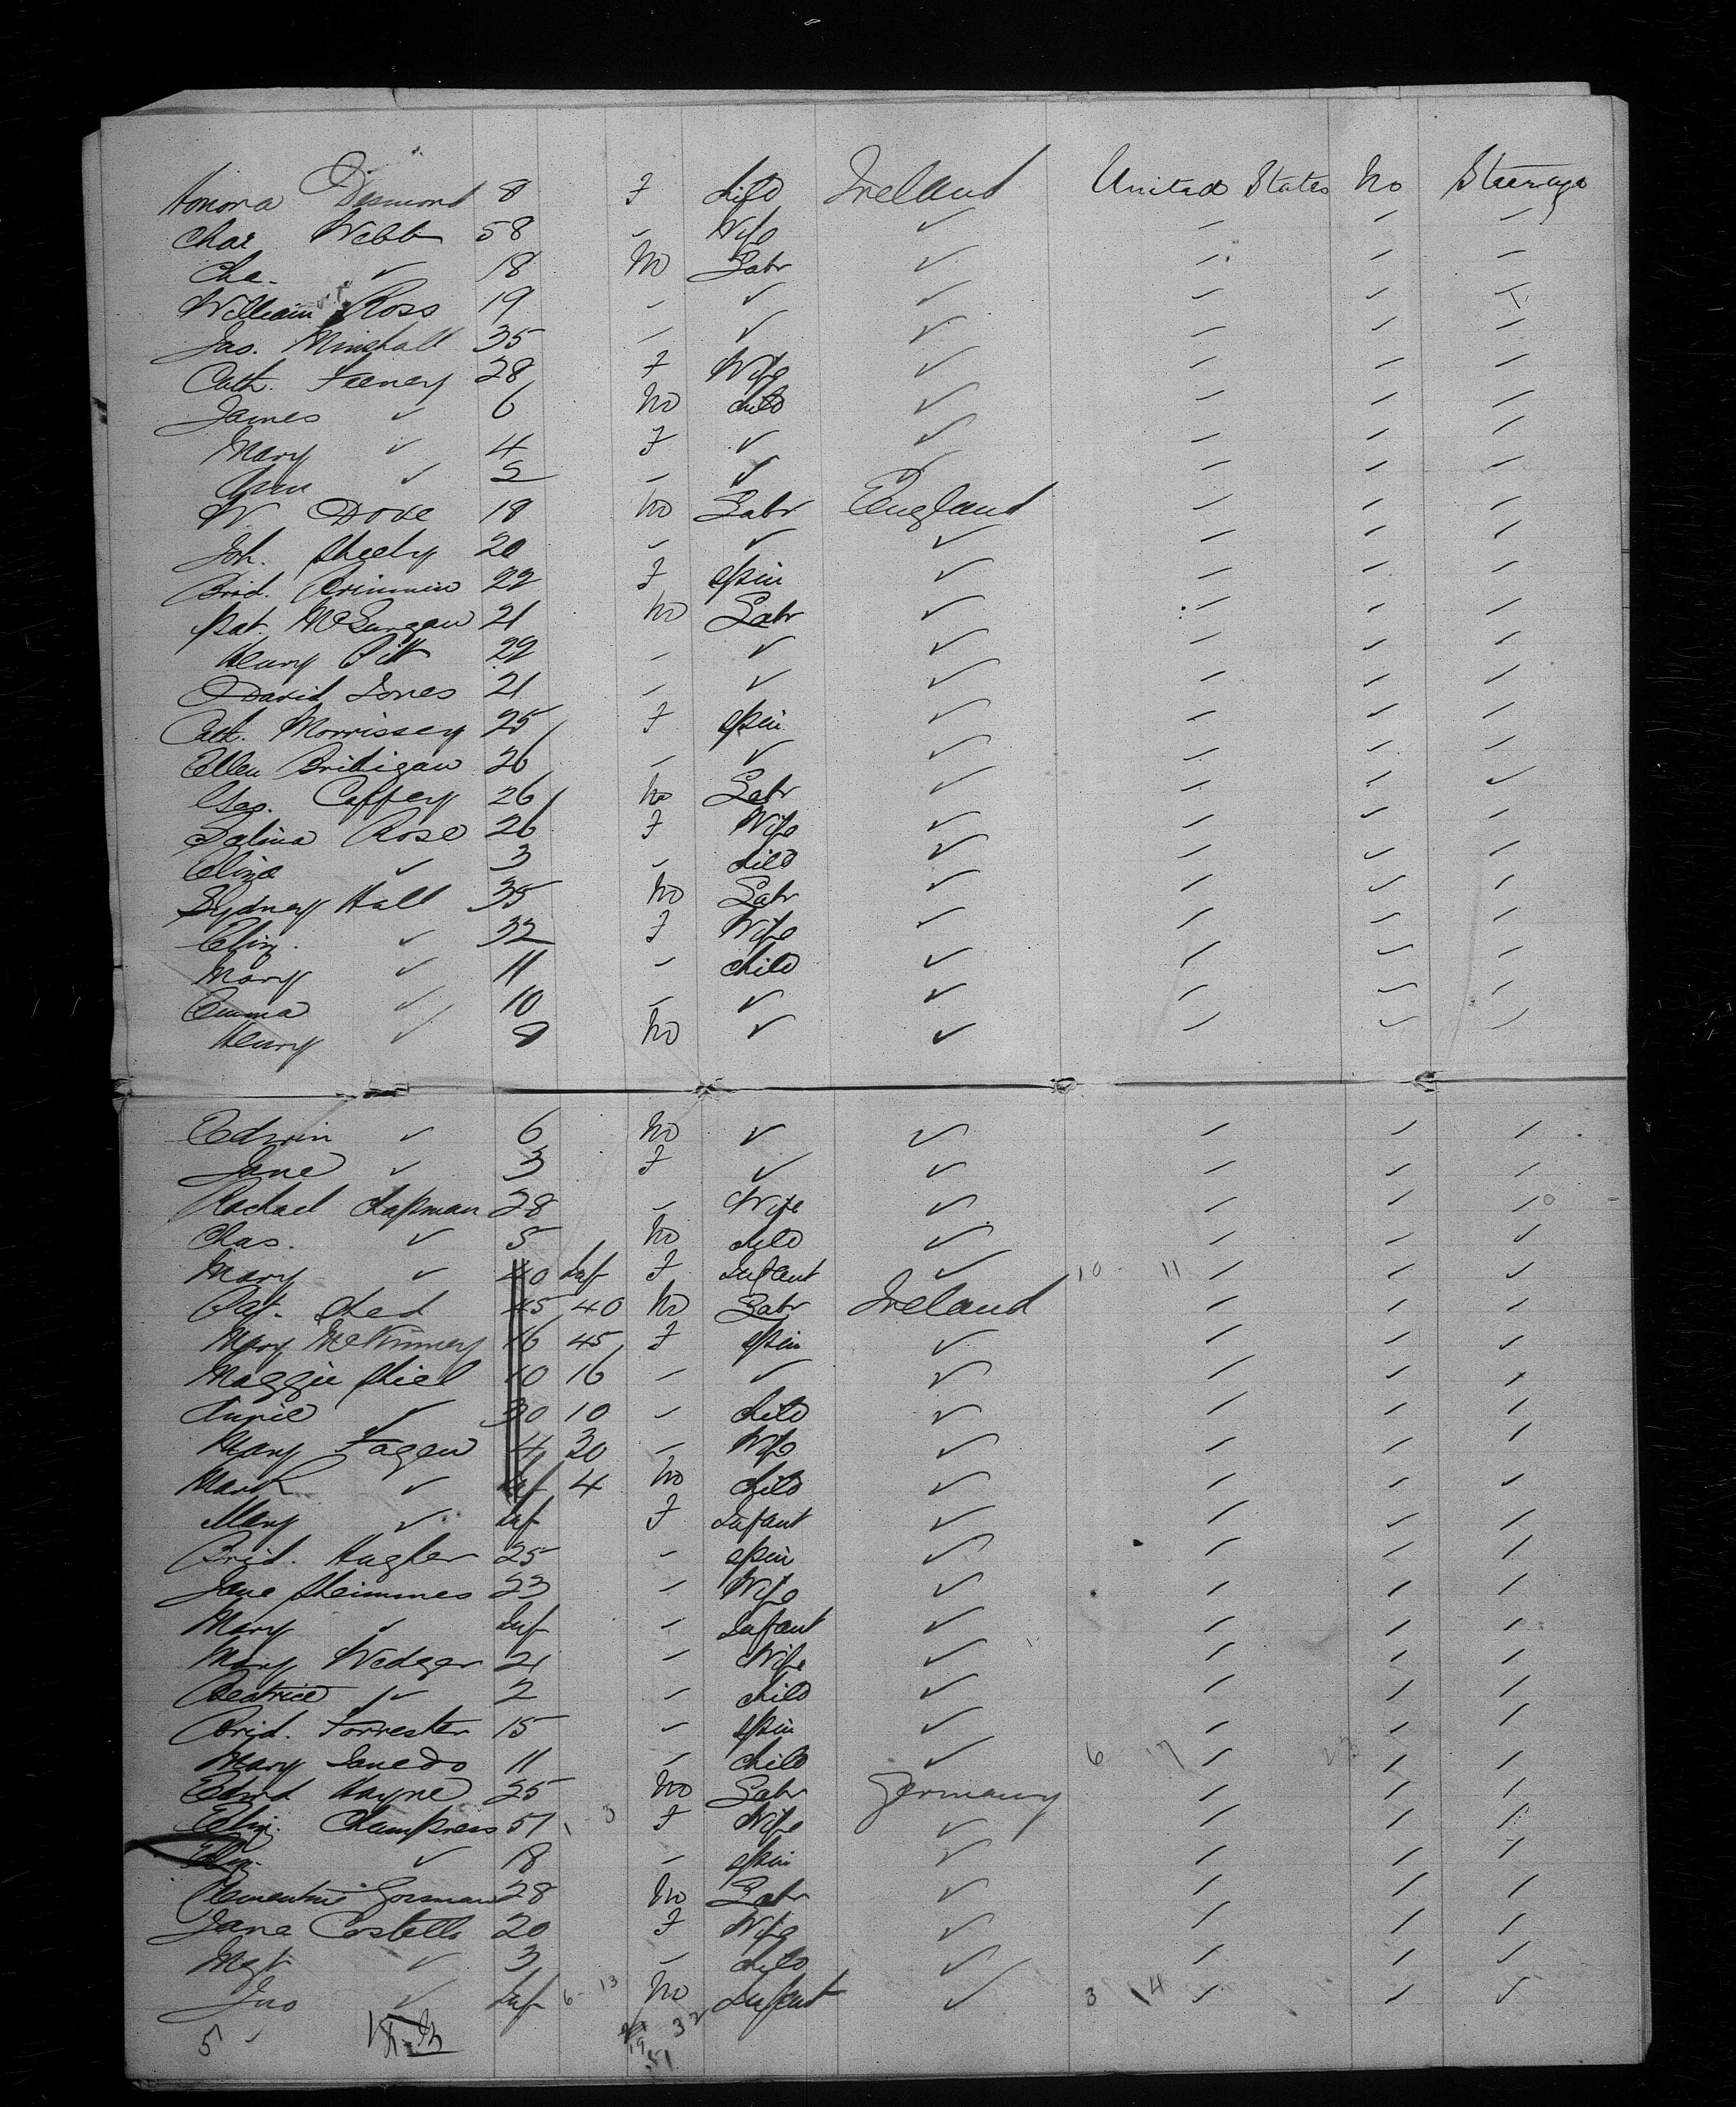 Honora Desmond 8 F Child Ireland United States No Steerage
Char Webb 58 - Wife ✓ - - -
Cha. ✓ 18 M Labr ✓ - - -
William Ross 19 - ✓ ✓ - - -
Jas. Minshall 35 - ✓ ✓ - - -
Cath. Feeney 28 F Wife ✓ - - -
James ✓ 6 M Child ✓ - - -
Mary ✓ 4 F ✓ ✓ - - -
Ann ✓ 2 - ✓ ✓ - - -
W. Dove 18 M Labr England - - -
Joh. Sheehy 20 - ✓ ✓ - - -
Brid. Crimmin 22 F Spin ✓ - - -
Pat. McGurgan 21 M Labr ✓ - - -
Henry Pitt 22 - ✓ ✓ - - -
David Jones 21 - ✓ ✓ - - -
Cath. Morrissey 25 F Spin ✓ - - -
Ellen 26 - ✓ ✓ - - -
Geo. Caffery 26 M Labr ✓ - - ✓
Salina Rose 26 F Wife ✓ - - -
Eliza ✓ 3 - Child ✓ - - -
Sydney Hall 35 M Labr ✓ - - -
Eliz. ✓ 32 F Wife ✓ - - -
Mary ✓ 11 - Child ✓ - - -
Emma ✓ 10 - ✓ ✓ - - -
Henry ✓ 8 M ✓ ✓ - - -
Edwin ✓ 6 M ✓ ✓ - - -
Jane ✓ 3 F ✓ ✓ - - -
Rachael Chapman 28 - Wife ✓ - - -
Chas. ✓ 5 M Child ✓ - - ✓
Mary ✓ 40 Inf F Infant ✓ 10 - 11 - - ✓
Pat. 45 40 M Labr Ireland - - -
Mary McKinney 16 45 F Spin ✓ - - ✓
Maggie Shiel 10 16 - ✓ ✓ - - -
Annie ✓ 30 10 - Child ✓ - - -
Mary Fagen 4 30 - Wife ✓ - - -
Mark ✓ Inf 4 M Child ✓ - - ✓
Mary ✓ Inf F Infant ✓ - - -
Brid. Hughes 25 - Spin ✓ - - -
Jane 23 - Wife ✓ - - -
Mary ✓ Inf - Infant ✓ - - -
Mary Wedger 21 - Wife ✓ - - -
Beatrice ✓ 2 - Child ✓ - - -
Brid. Forrester 15 - Spin ✓ - - -
Mary 11 - Child ✓ 6 17 - - -
Edwd Hayne 25 M Labr Germany - - -
Eliz. Champress 51 1 - 3 F Wife ✓ - - -
Eliz. ✓ 18 - Spin ✓ - - -
Clementine Gorman 28 M Labr ✓ - - -
Jane Costello 20 F Wife ✓ - - -
Mgt ✓ 3 - Child ✓ - - ✓
Jno ✓ Inf 6 - 13 M Infant ✓ 3 14 - - ✓
5 32
19
51